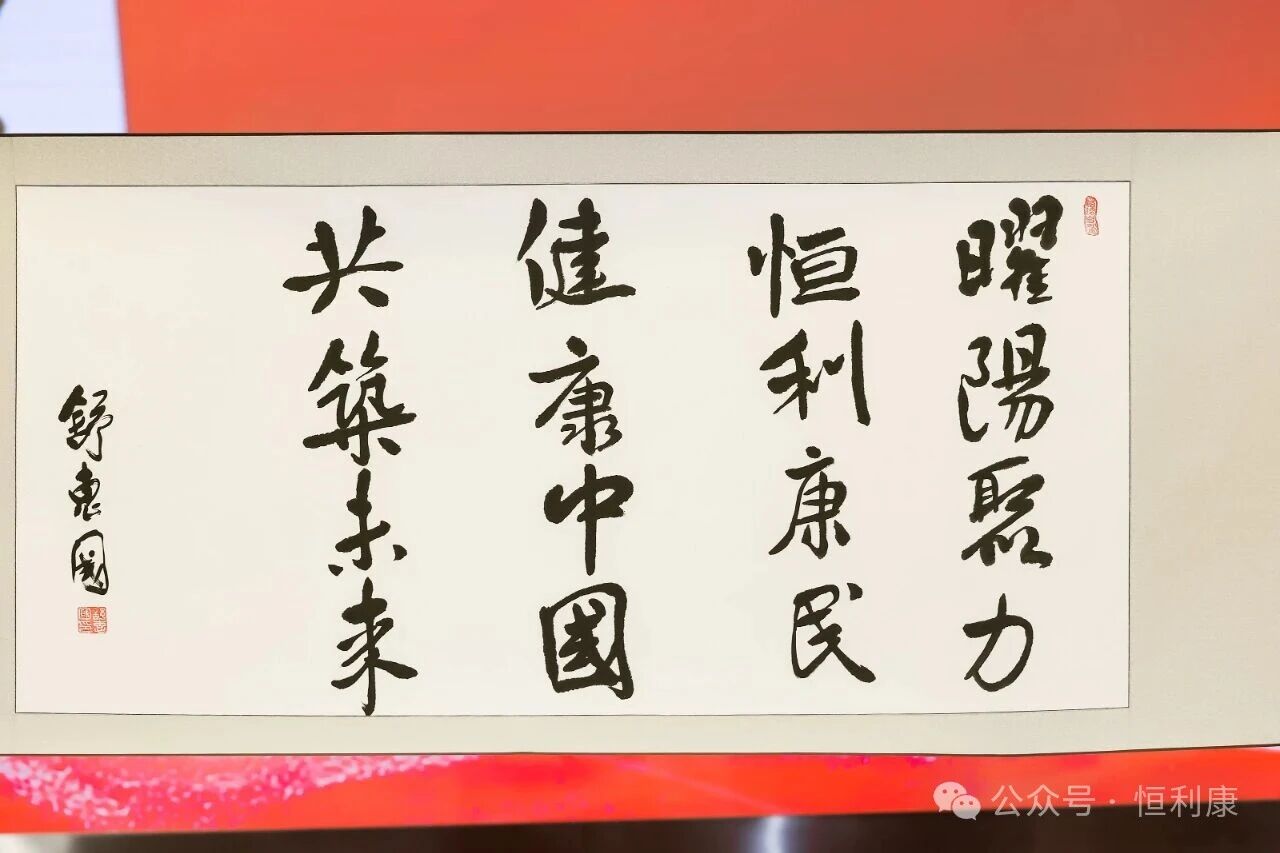 曜陽聚力
恒利康民
健康中國
共築未来
舒惠國
公众号·恒利康